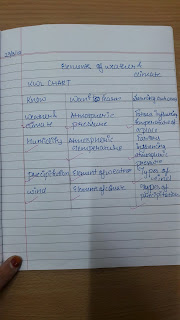 of weather &
climate
KWL CHART
Know
Want to learn
Learning outcomes
Weather &
climate
Atmospheric
pressure
Factors influencing
temperature of
a place
Humidity
Atmospheric
temperature
Factors
influencing
atmospheric
pressure
Precipitation
Element of weather
Types of
wind
wind
Element of climate
Types of
precipitation